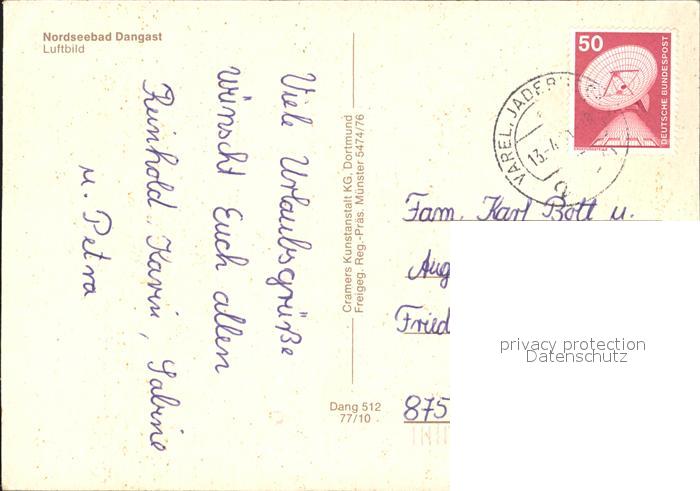 Nordseebad Dangast
Luftbild
Viele Urlaubsgrüße
wünscht Euch allen
Reinhold, Karin, Sabine
u. Petra
Cramers Kunstanstalt KG, Dortmund
Freigeg. Reg.-Präs. Münster 5474/76
Dang 512
77/10
50
DEUTSCHE BUNDESPOST
VAREL, JADEB
13.-4.
Fam. Karl Bott u.
Aug
Fried
875
privacy protection
Datenschutz